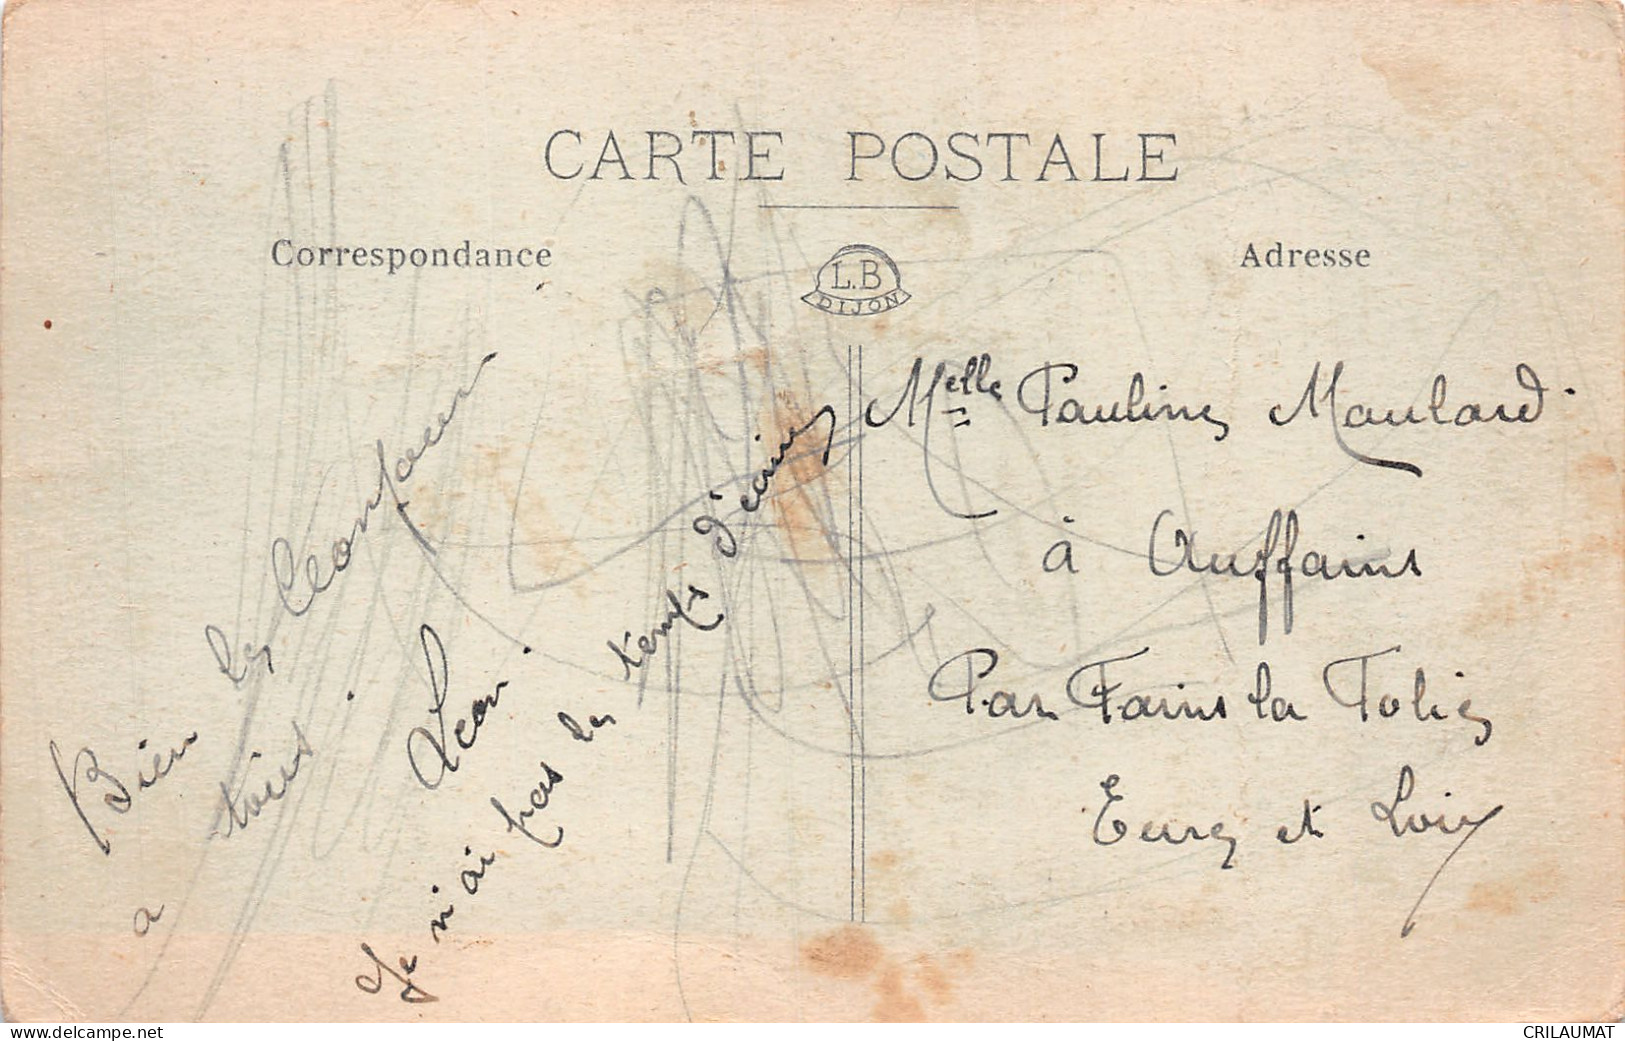 CARTE POSTALE
Correspondance
L.B
DIJON
Adresse
Bien le
a tous.
Léon.
Je n'ai pas le temps d'écrire
Melle Pauline Moulard
à Auffains
Par Fains la Folie
Eure et Loir
www.delcampe.net
CRILAUMAT